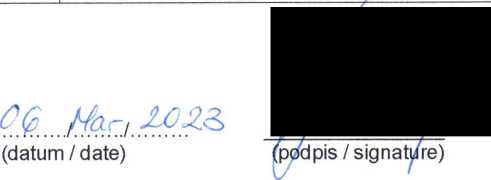 06 / Mar / 2023
(datum / date) (podpis / signature)